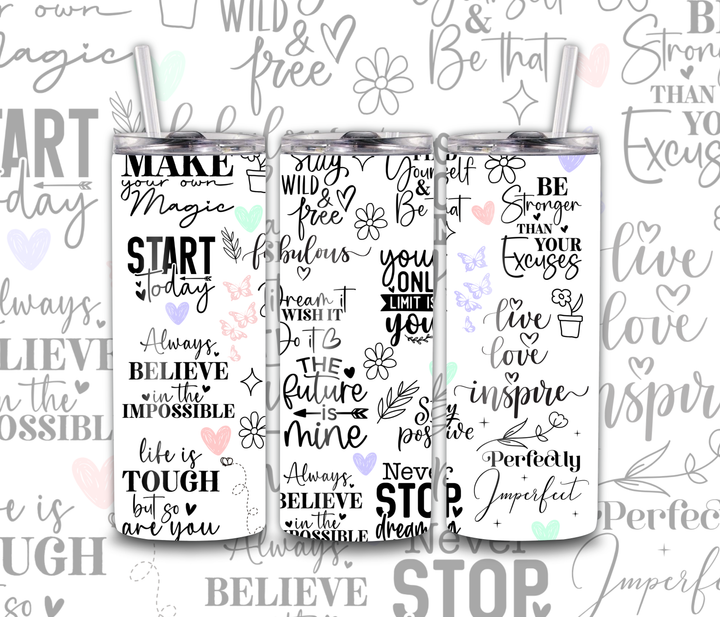 MAKE
your own
Magic
START
today
Always
BELIEVE
in the
IMPOSSIBLE
life is
TOUGH
but so
are you
Stay
WILD
&
free
fabulous
Dream it
WISH IT
Do it
THE
future
IS
mine
Always
BELIEVE
in the
IMPOSSIBLE
Yourself
&
Be that
your
ONLY
LIMIT IS
you
Stay
positive
Never
STOP
dreaming
BE
Stronger
THAN
YOUR
Excuses
live
love
inspire
Perfectly
Imperfect
your own
Magic
START
today
Always
BELIEVE
in the
IMPOSSIBLE
life is
TOUGH
but so
WILD
&
free
&
Be that
BE
Stronger
THAN
YOUR
Excuses
live
love
inspire
Perfectly
Imperfect
Always
BELIEVE
Never
STOP